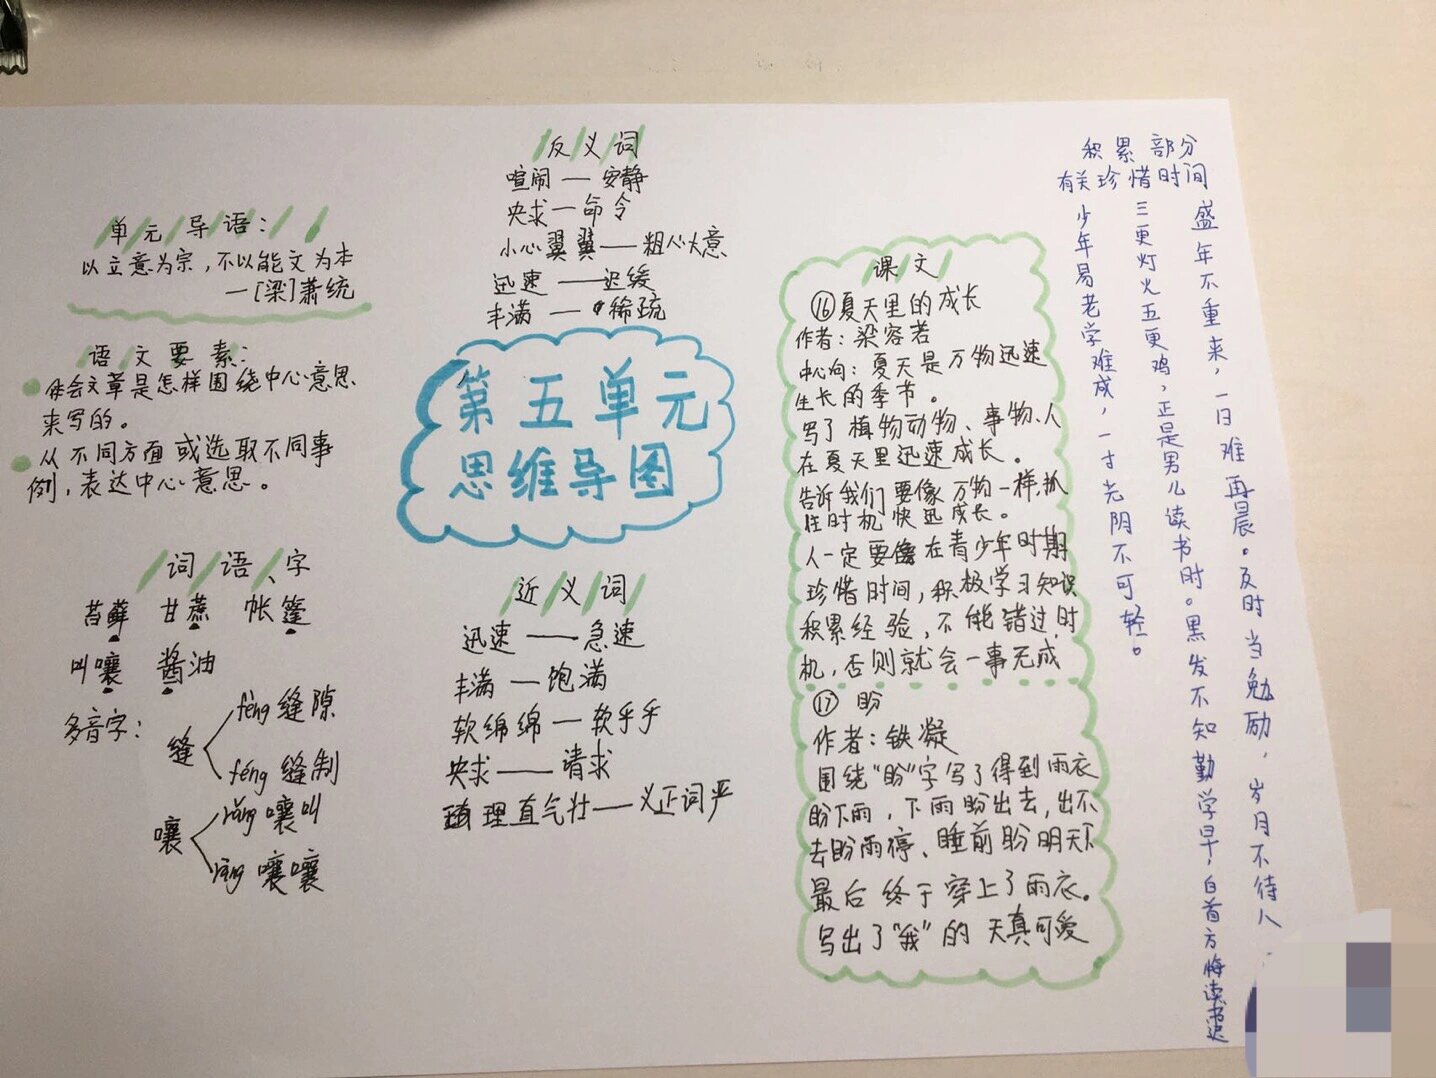 单元导语：
以立意为宗，不以能文为本
—[梁]萧统
语文要素：
体会文章是怎样围绕中心意思
来写的。
从不同方面或选取不同事
例，表达中心意思。
词语、字
苔藓 甘蔗 帐篷
叫嚷 酱油
多音字：
缝
fèng 缝隙
féng 缝制
嚷
rǎng 嚷叫
rāng 嚷嚷
反义词
喧闹——安静
央求—命令
小心翼翼——粗心大意
迅速——迟缓
丰满——稀疏
第五单元
思维导图
近义词
迅速——急速
丰满—饱满
软绵绵—软乎乎
央求——请求
理直气壮——义正词严
课文
⑯夏天里的成长
作者：梁容若
中心向：夏天是万物迅速
生长的季节。
写了植物动物、事物、人
在夏天里迅速成长。
告诉我们要像万物一样，抓
住时机快迅成长。
人一定要在青少年时期
珍惜时间，积极学习知识
积累经验，不能错过时
机，否则就会一事无成
⑰ 盼
作者：铁凝
围绕“盼”字写了得到雨衣
盼下雨，下雨盼出去，出不
去盼雨停、睡前盼明天下
最后终于穿上了雨衣。
写出了“我”的天真可爱
积累部分
有关珍惜时间
盛年不重来，一日难再晨。及时当勉励，岁月不待人。
三更灯火五更鸡，正是男儿读书时。黑发不知勤学早，白首方悔读书迟
少年易老学难成，一寸光阴不可轻。